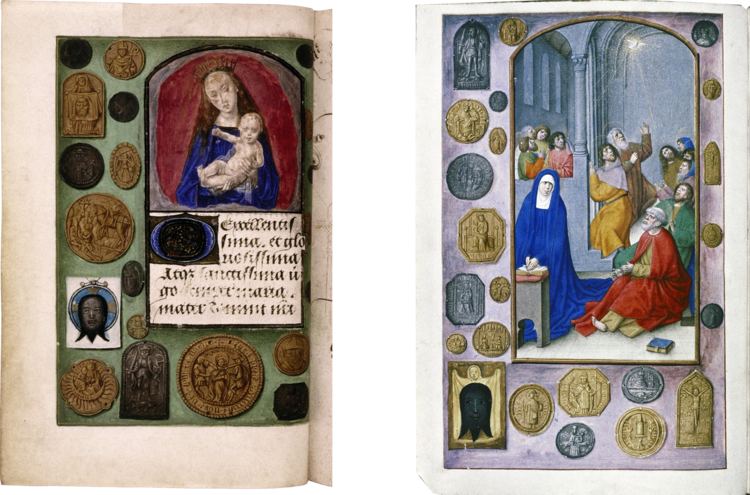 O Excellentis
sima. et glo
riosissima
Atqꝫ sanctissima vi
go semper maria.
mater domini nri